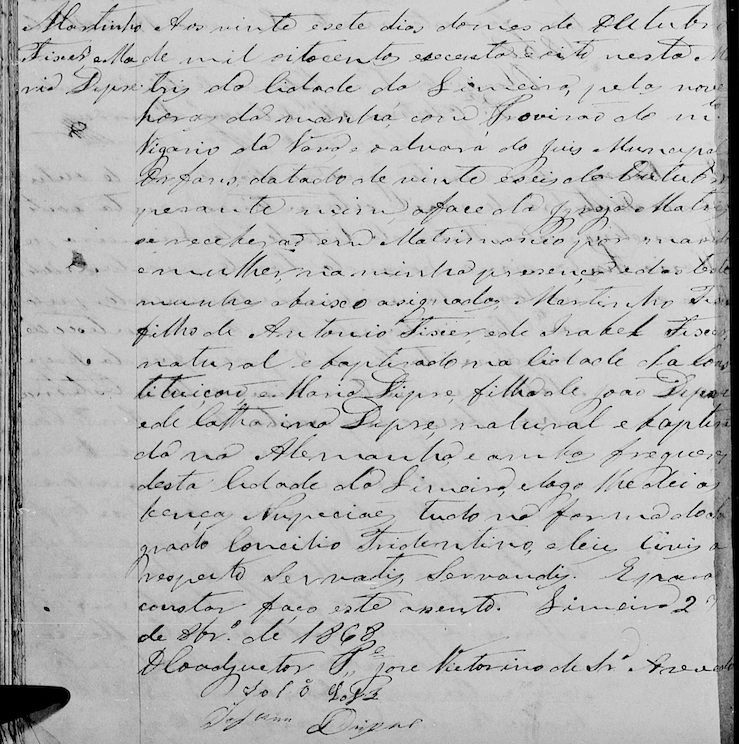 Martinho Aos vinte e sete dias do mes de Outubro
Fiscer e Ma de mil oitocentos e secenta e oito nesta Ma
ria Dipre tris da Cidade da Limeira, pelas nove
horas da manhã, com Provisão do
Vigario da Vara, e o alvará do Juis Municipal
Orfans, datado de vinte e seis de Outubro
perante mim a face da Igreja Matriz
se receberão em Matrimonio por marido
e mulher, na minha presença e das teste
munhas abaixo asignadas, Martinho Fiscer
filho de Antonio Fiscer, e de Izabel Fiscer
natural e baptizado na Cidade da Cons
tituicão, e Maria Dipre, filha de João Dipre
e de Catharina Dipre, natural e baptiza
da na Alemanha, e ambos freguezes
desta Cidade da Limeira, e logo lhe dei as
bençã Nupciaes, tudo na forma do Sa
grado Concilio Tridentino, e leis Civis a
respeito Servatis Servandis. E para
constar faço este asento. Limeira 2
de 8br.º de 1868
O Coadjuctor P.e José Victorino de Sz.ª Azevedo
João
Dipre